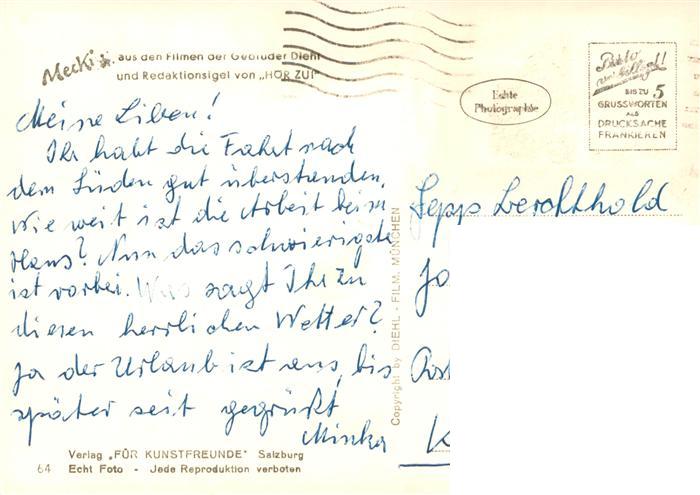 Mecki, aus den Filmen der Gebrüder Diehl
und Redaktionsigel von „HÖR ZU!"
Meine Lieben!
Ihr habt die Fahrt nach
dem Süden gut überstanden.
Wie weit ist die Arbeit beim
Haus? Nun das schwierigste
ist vorbei. Was sagt Ihr zu
diesen herrlichen Wetter?
Ja der Urlaub ist aus, bis
später seit gegrüßt
Minka
Verlag „FÜR KUNSTFREUNDE" Salzburg
64 Echt Foto - Jede Reproduktion verboten
Copyright by DIEHL - FILM, MÜNCHEN
Echte
Photographie
BIS ZU 5
GRUSSWORTEN
ALS
DRUCKSACHE
FRANKIEREN
Sepp Berchthold
Jo
Post
K